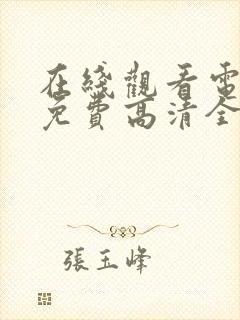 在綫觀看電
免費高清全
張玉峰